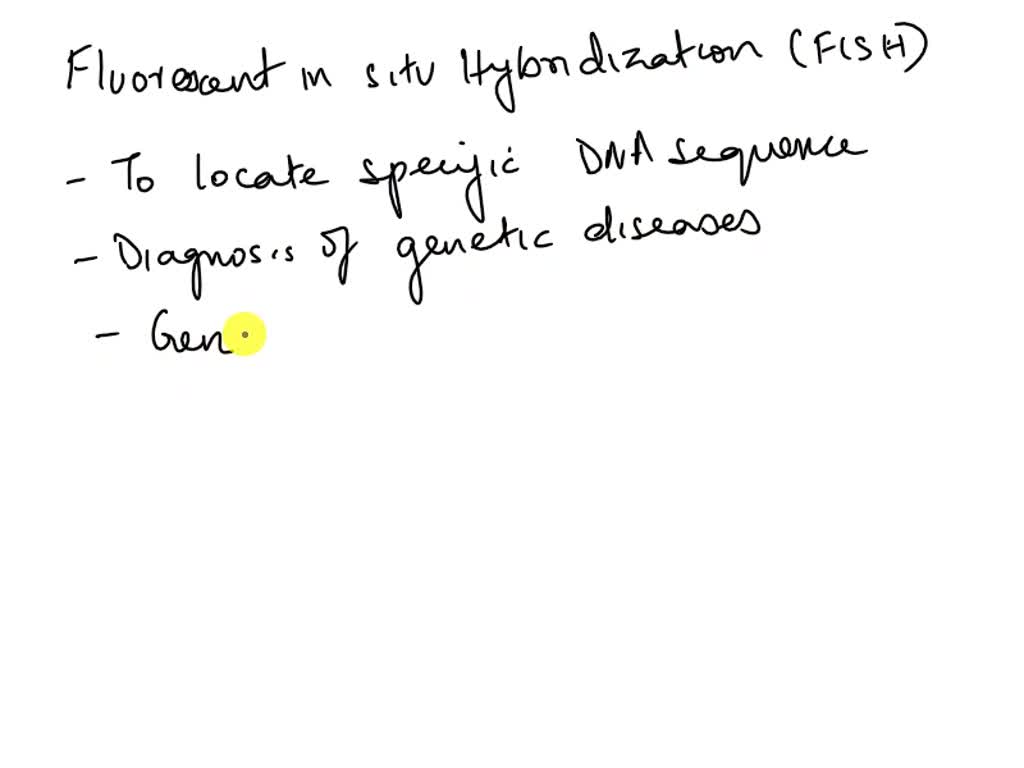 Fluorescent in situ Hybridization (FISH)
- To locate specific DNA sequence
- Diagnosis of genetic diseases
- Gen